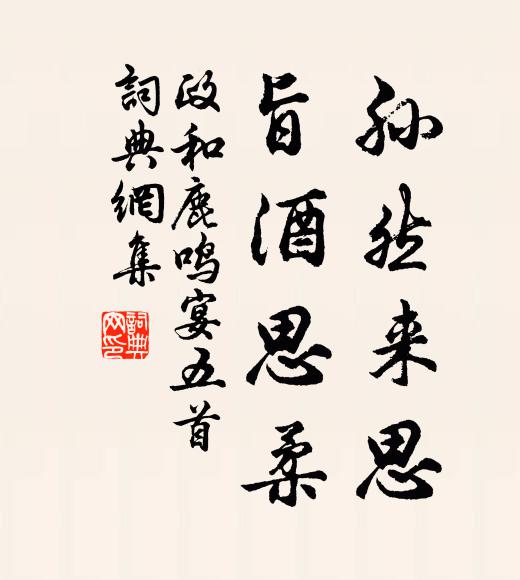 孙然来思
旨酒思柔
政和鹿鸣宴五首
詞典網集
詞典网印